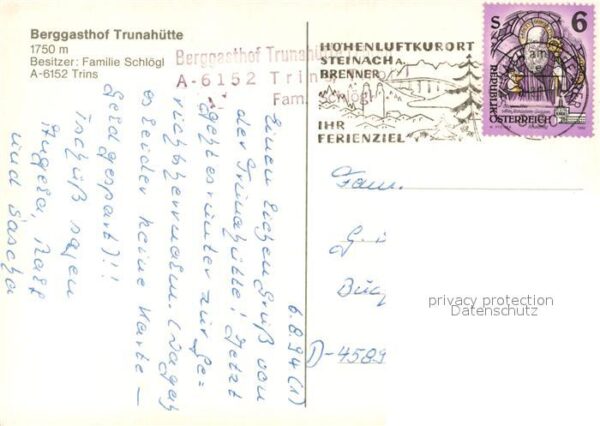 Berggasthof Trunahütte
1750 m
Besitzer: Familie Schlögl
A-6152 Trins
Berggasthof Trunahütte
A-6152 Trins
Fam. Schlögl
HÖHENLUFTKURORT
STEINACH A.
BRENNER
IHR
FERIENZIEL
S 6
REPUBLIK
ÖSTERREICH
6.8.94 (1)
Einen lieben Gruß von
der Trunahütte! Jetzt
geht es runter zur Ge=
es leider keine Karte –
Geld gespart)!!
Tschüß sagen
Angela, Ralf
und Sascha
Fam.
D-4589
privacy protection
Datenschutz